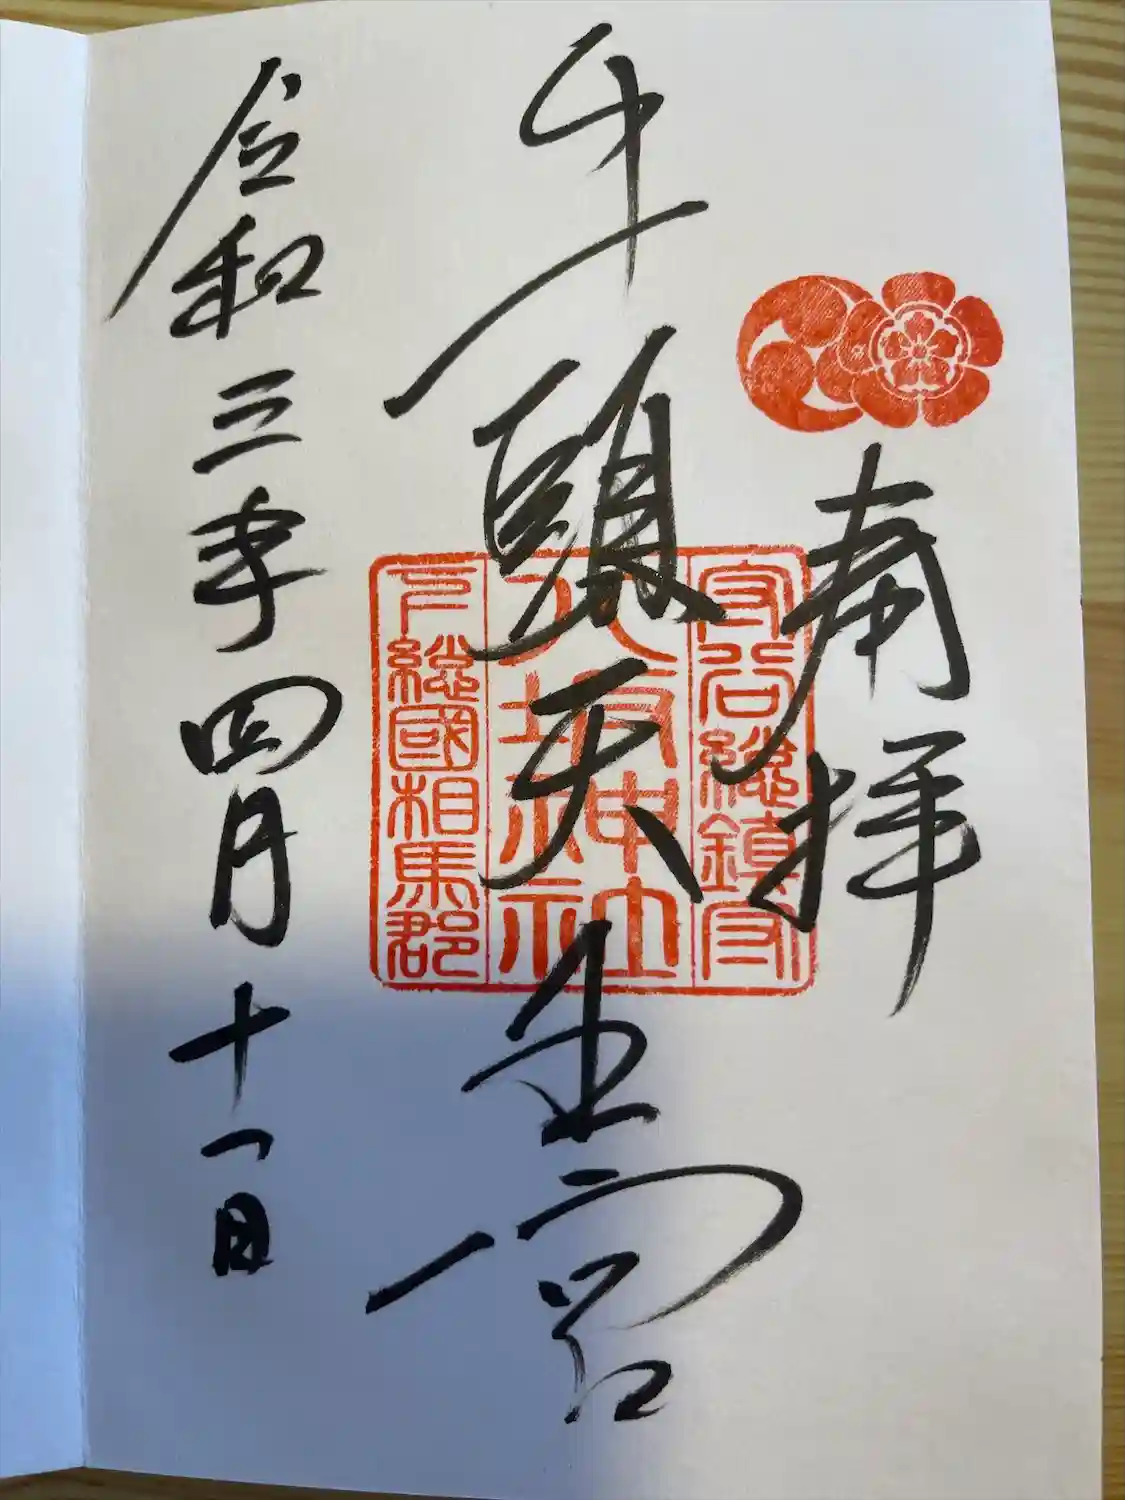 奉拝
牛頭天王宮
守谷総鎮守
八坂神社
下総國相馬郡
令和三年四月十一日